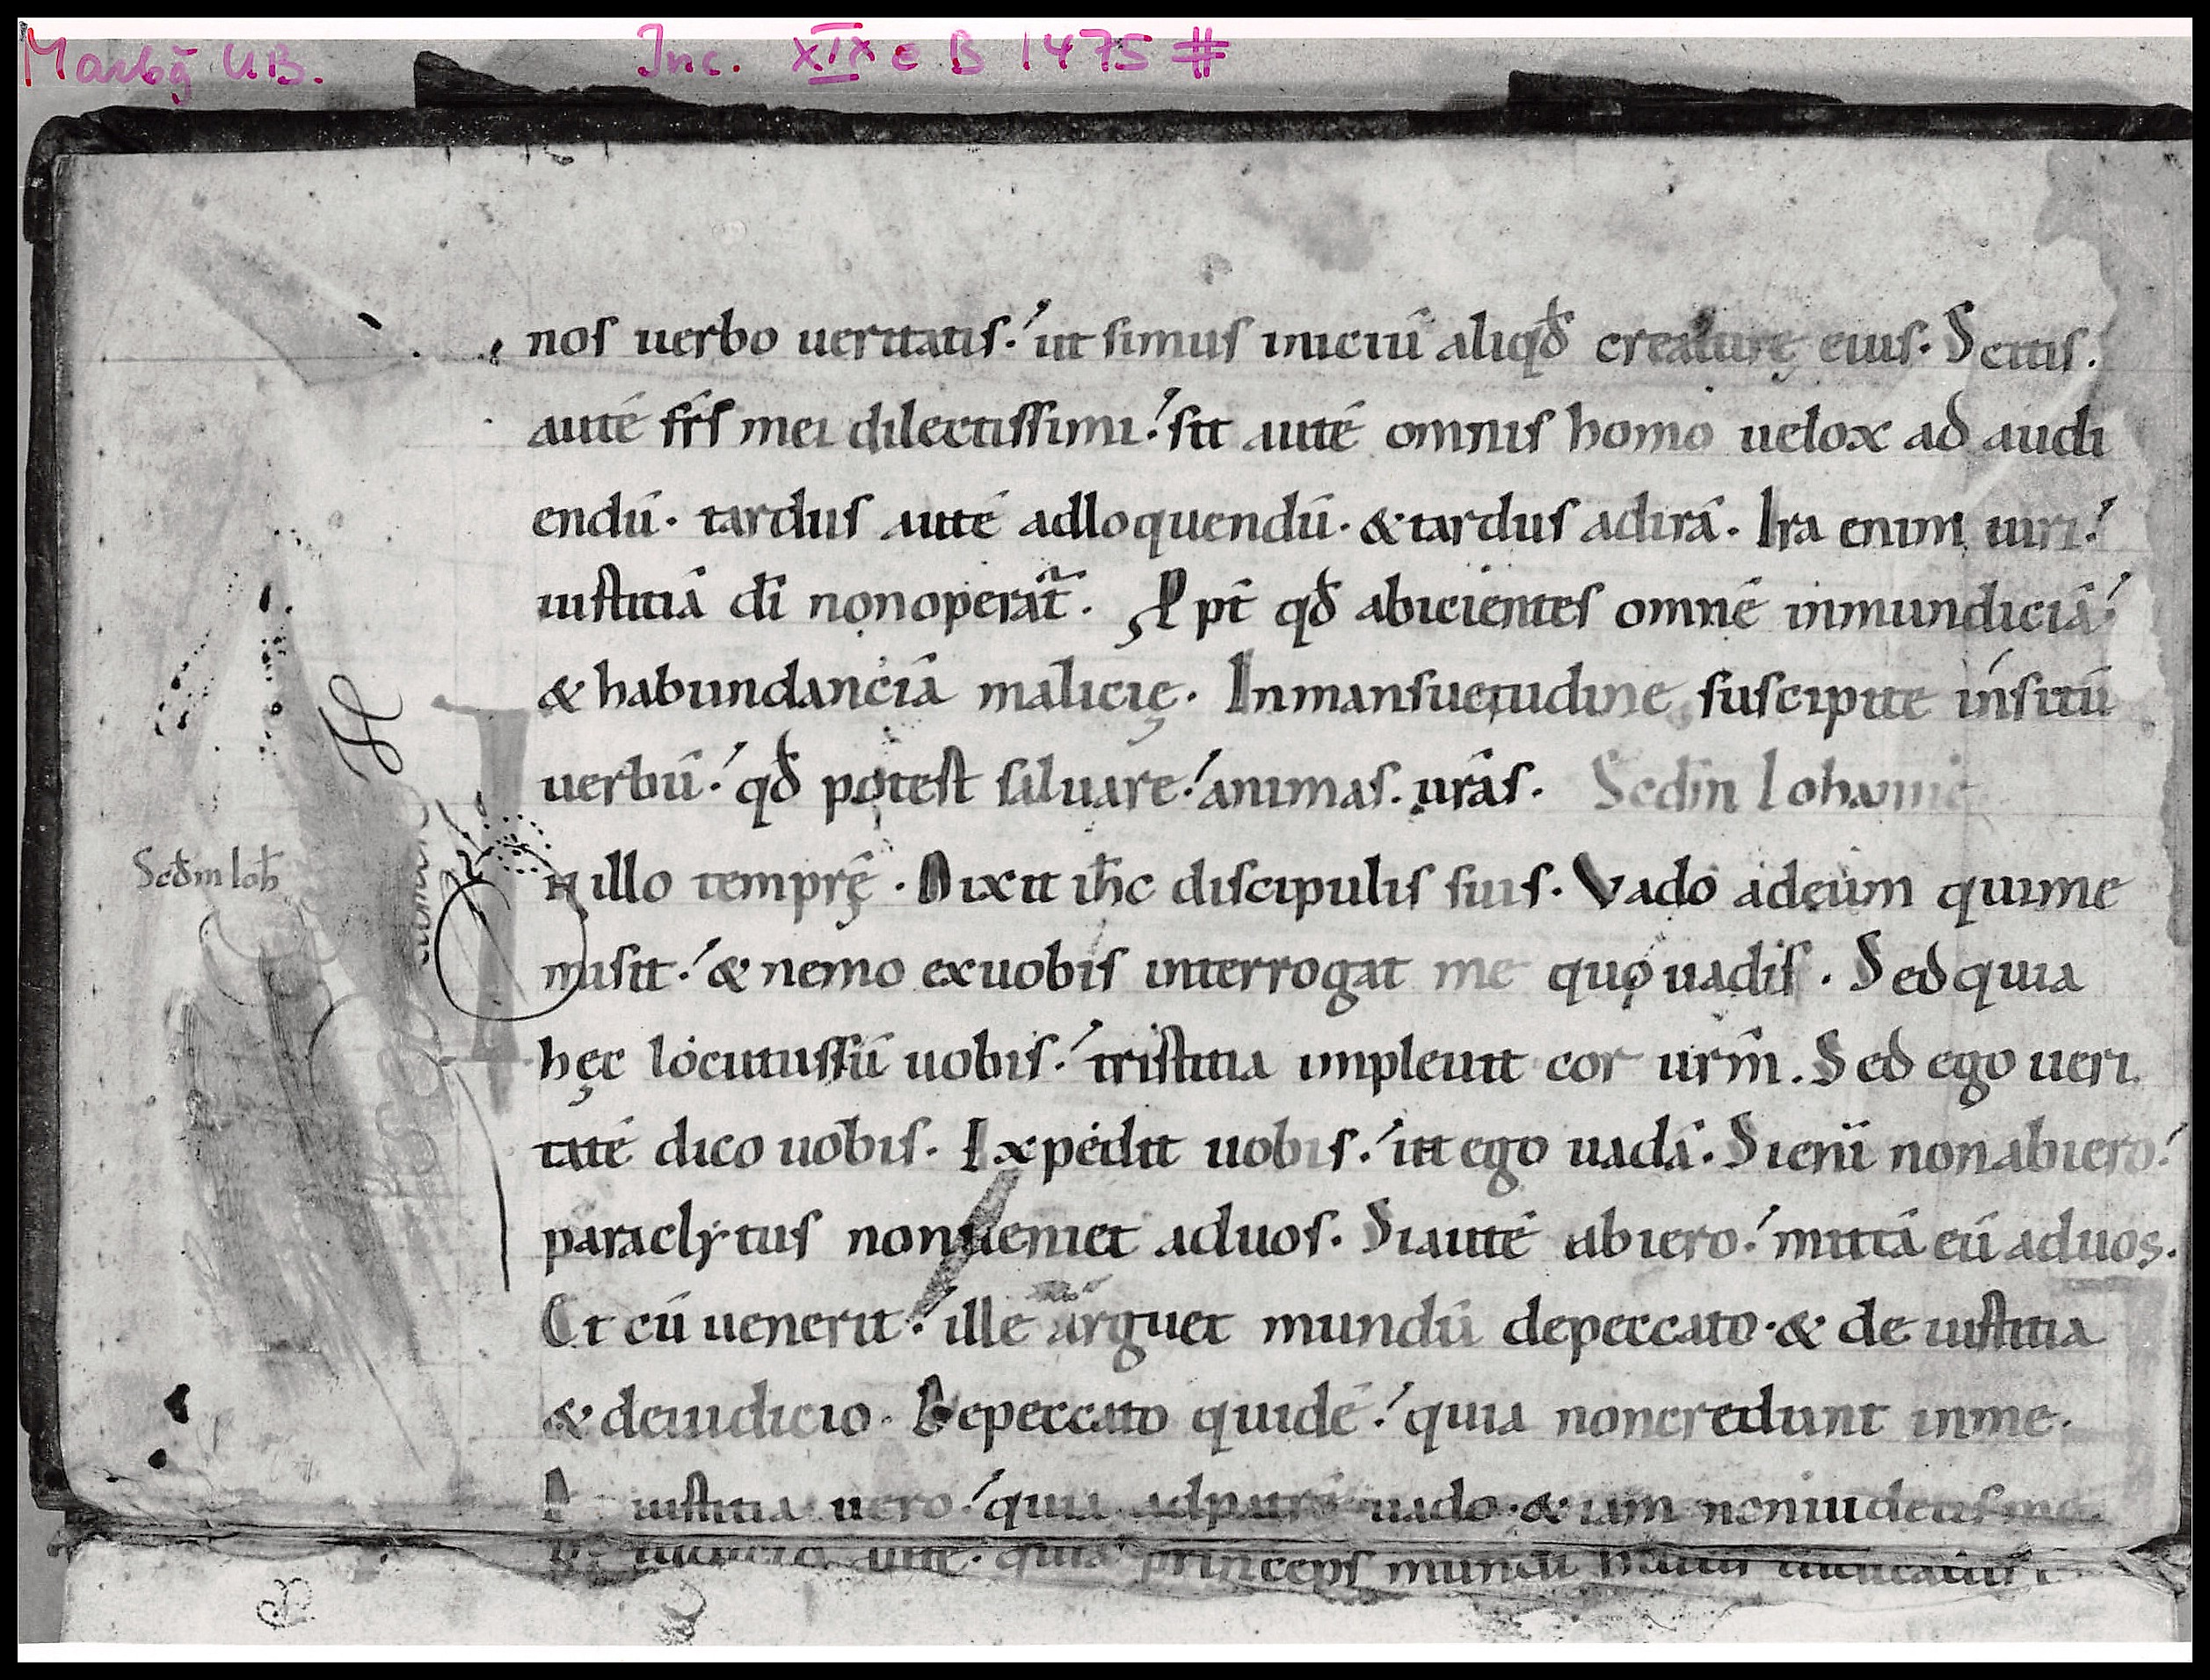 Marbg UB. Inc. XIX c B 1475 #
nos uerbo ueritatis. ut simus iniciū aliqđ creaturę eius. Scitis.
autē fr̄s mei dilectissimi. sit autē omnis homo uelox ad audi
endū. tardus autē adloquendū. & tardus adirā. Ira enim uiri.
iustitiā dī nonoperat̄. Ppt̄ qđ abicientes omnē inmundiciā.
& habundanciā malicię. Inmansuetudine suscipite insitū
uerbū. qđ potest saluare. animas. ur̄as. Scdm̄ Iohannē
Scđm Ioh̄
In illo temprę̄. Dixit ih̄c discipulis suis. Vado adeum quime
misit. & nemo exuobis interrogat me quo uadis. Sed quia
hęc locutussū uobis. tristitia impleuit cor ur̄m. Sed ego ueri
tatē dico uobis. Expedit uobis. ut ego uadā. Sieni̅ nonabiero.
paraclytus nonueniet aduos. Siautē abiero. mittā eū aduos.
Et cū uenerit. ille arguet mundū depeccato. & de iustitia
& deiudicio. Depeccato quidē. quia noncredunt inme.
iustitia uero. quia adpatrē uado. & iam nonuidetis me.
De iudicio autē. quia princeps mundi huius iudicatus